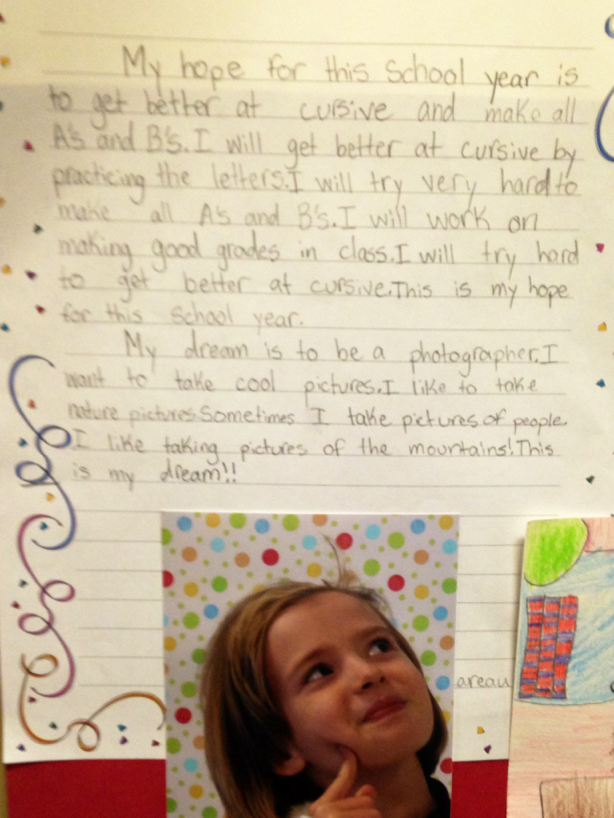 My hope for this School year is
to get better at cursive and make all
A's and B's. I will get better at cursive by
practicing the letters. I will try very hard to
make all A's and B's. I will work on
making good grades in class. I will try hard
to get better at cursive. This is my hope
for this School year.
My dream is to be a photographer. I
want to take cool pictures. I like to take
nature pictures. Sometimes I take pictures of people.
I like taking pictures of the mountains! This
is my dream!!
areau